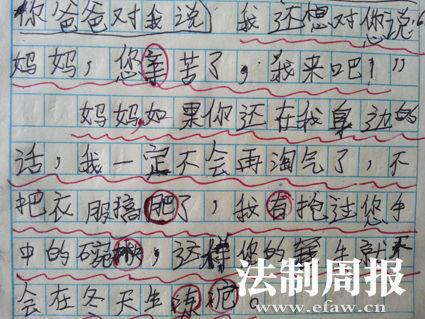 你爸爸对我说 我还想对您说:“
妈妈,您辛苦了,我来吧!”
妈妈,如果你还在我身边的
话,我一定不会再淘气了,不
把衣服搞肥了,我百抢过您手
中的碗,这样你的手就不
会在冬天生冻疮。
法制周报
www.efaw.cn